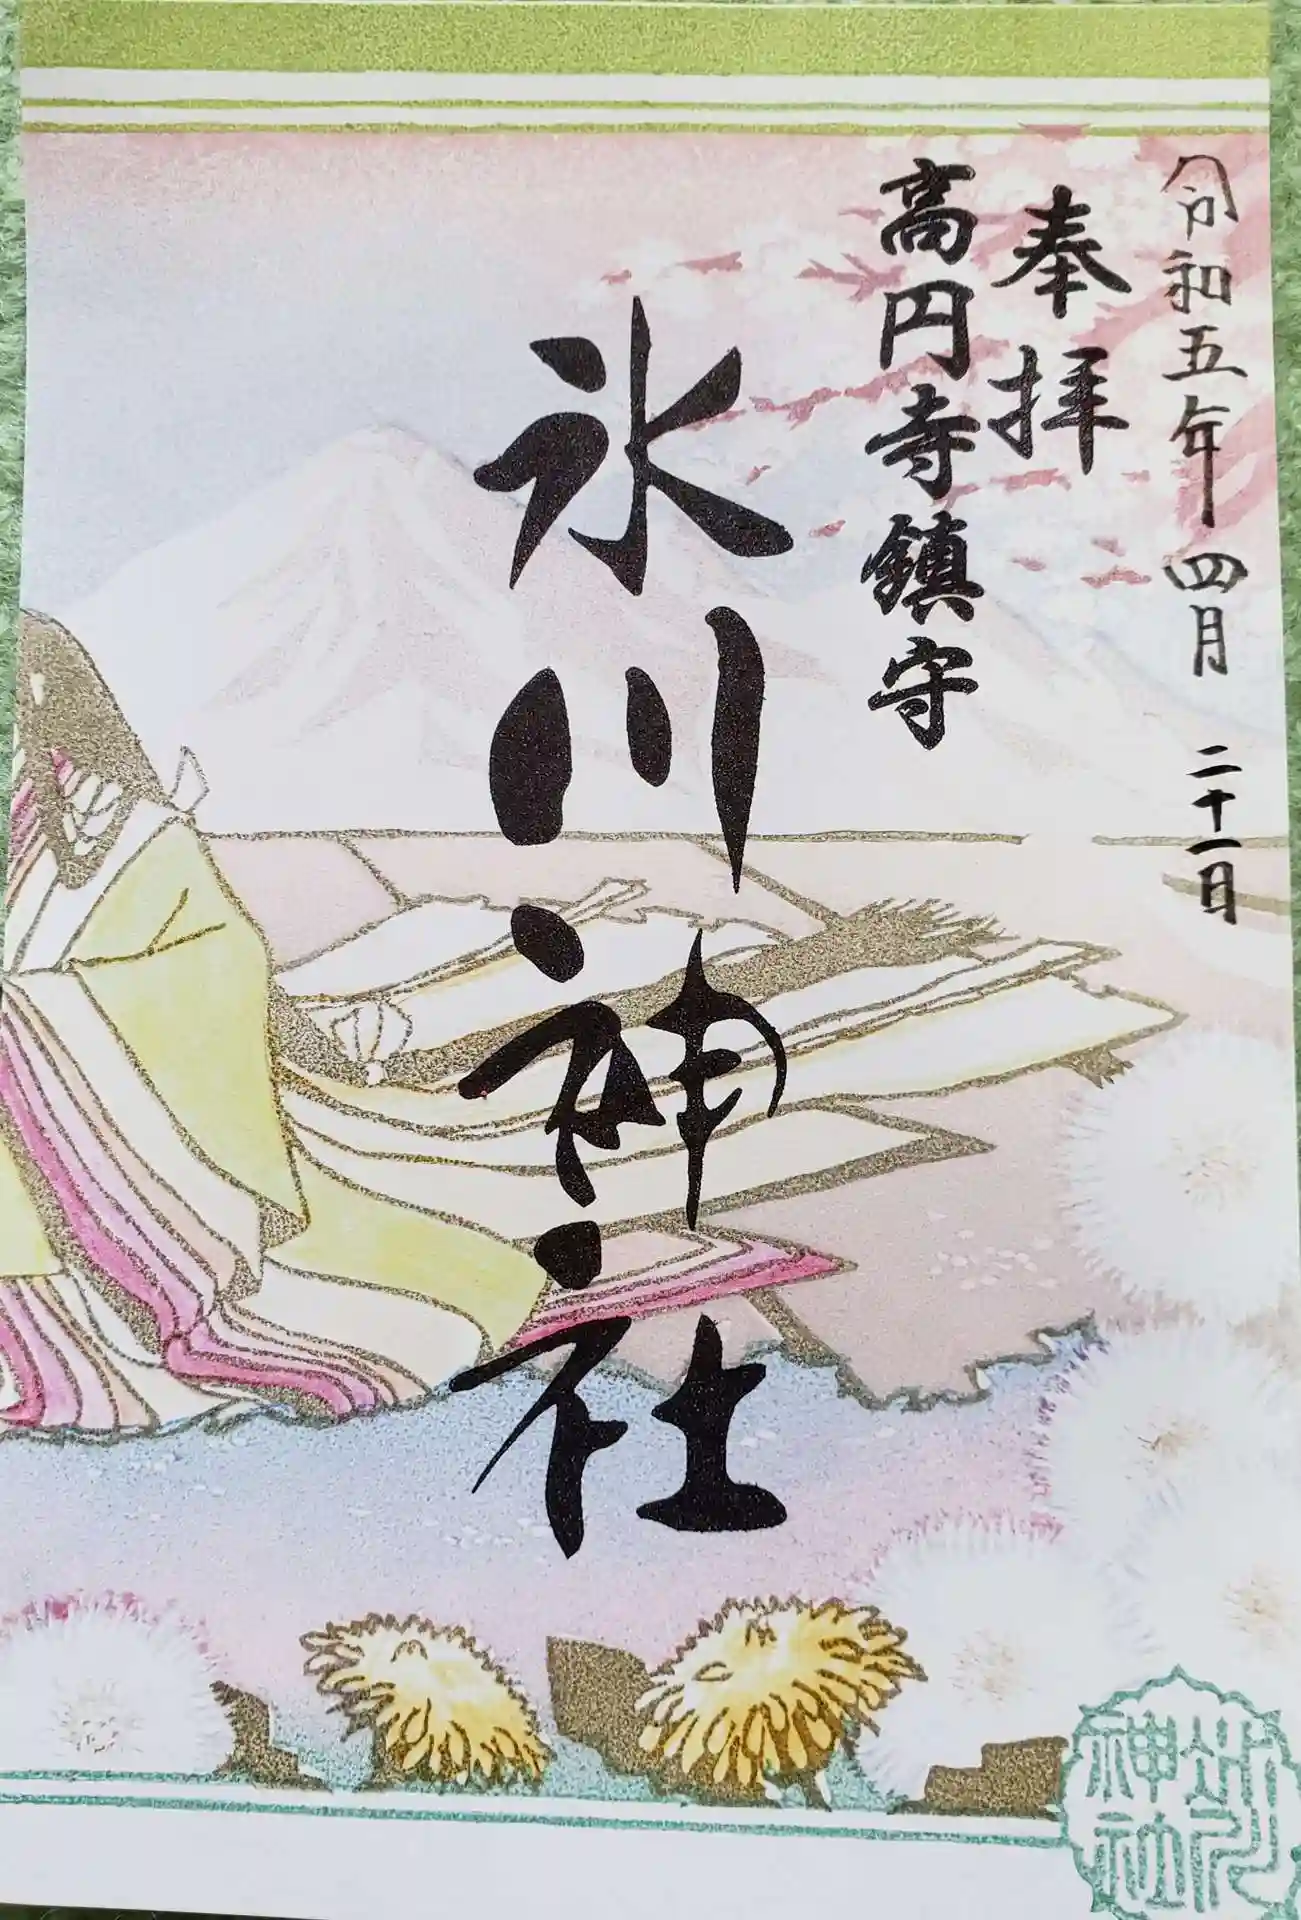 令和五年四月二十一日
奉拝
高円寺鎮守
氷川神社